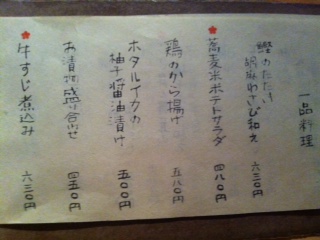 一品料理
鰹のたたき
胡麻わさび和え
六三〇円
蕎麦米ポテトサラダ
四八〇円
鶏のから揚げ
五八〇円
ホタルイカの
柚子醤油漬け
五〇〇円
お漬物盛り合せ
四五〇円
牛すじ煮込み
六三〇円